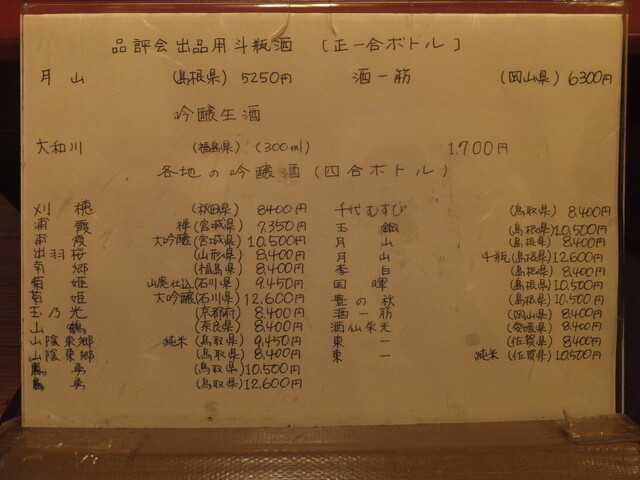 品評会出品用斗瓶酒 [正一合ボトル]
月山 (島根県) 5250円 酒一筋 (岡山県) 6300円
吟醸生酒
大和川 (福島県) (300ml) 1.700円
各地の吟醸酒(四合ボトル)
刈穂 (秋田県) 8400円
浦霞 禅(宮城県) 7.350円
浦霞 大吟醸(宮城県) 10,500円
出羽桜 (山形県) 8.400円
南郷 (福島県) 8.400円
菊姫 山廃仕込(石川県) 9.450円
菊姫 大吟醸(石川県) 12.600円
玉乃光 (京都府) 8.400円
山鶴 (奈良県) 8.400円
山陰東郷 純米(鳥取県) 9.450円
山陰東郷 (鳥取県) 8.400円
勇 (鳥取県) 10,500円
勇 (鳥取県) 12.600円
千代むすび (鳥取県) 8.400円
玉鋼 (島根県) 10,500円
月山 (島根県) 8.400円
月山 斗瓶(島根県) 12.600円
李白 (島根県) 8.400円
國暉 (島根県) 10,500円
豊の秋 (島根県) 10,500円
酒一筋 (岡山県) 8.400円
酒仙栄光 (愛媛県) 8.400円
東一 (佐賀県) 8.400円
東一 純米(佐賀県) 10,500円